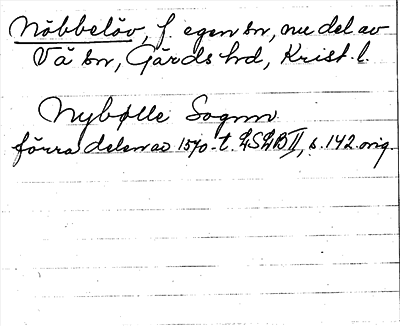 Nöbbelöv, f. egen sn, nu del av
Vä sn, Gärds hd, Krist. l.
Nybølle Sognn
förra delen av 1570-t. LSLB II, s. 142. orig.